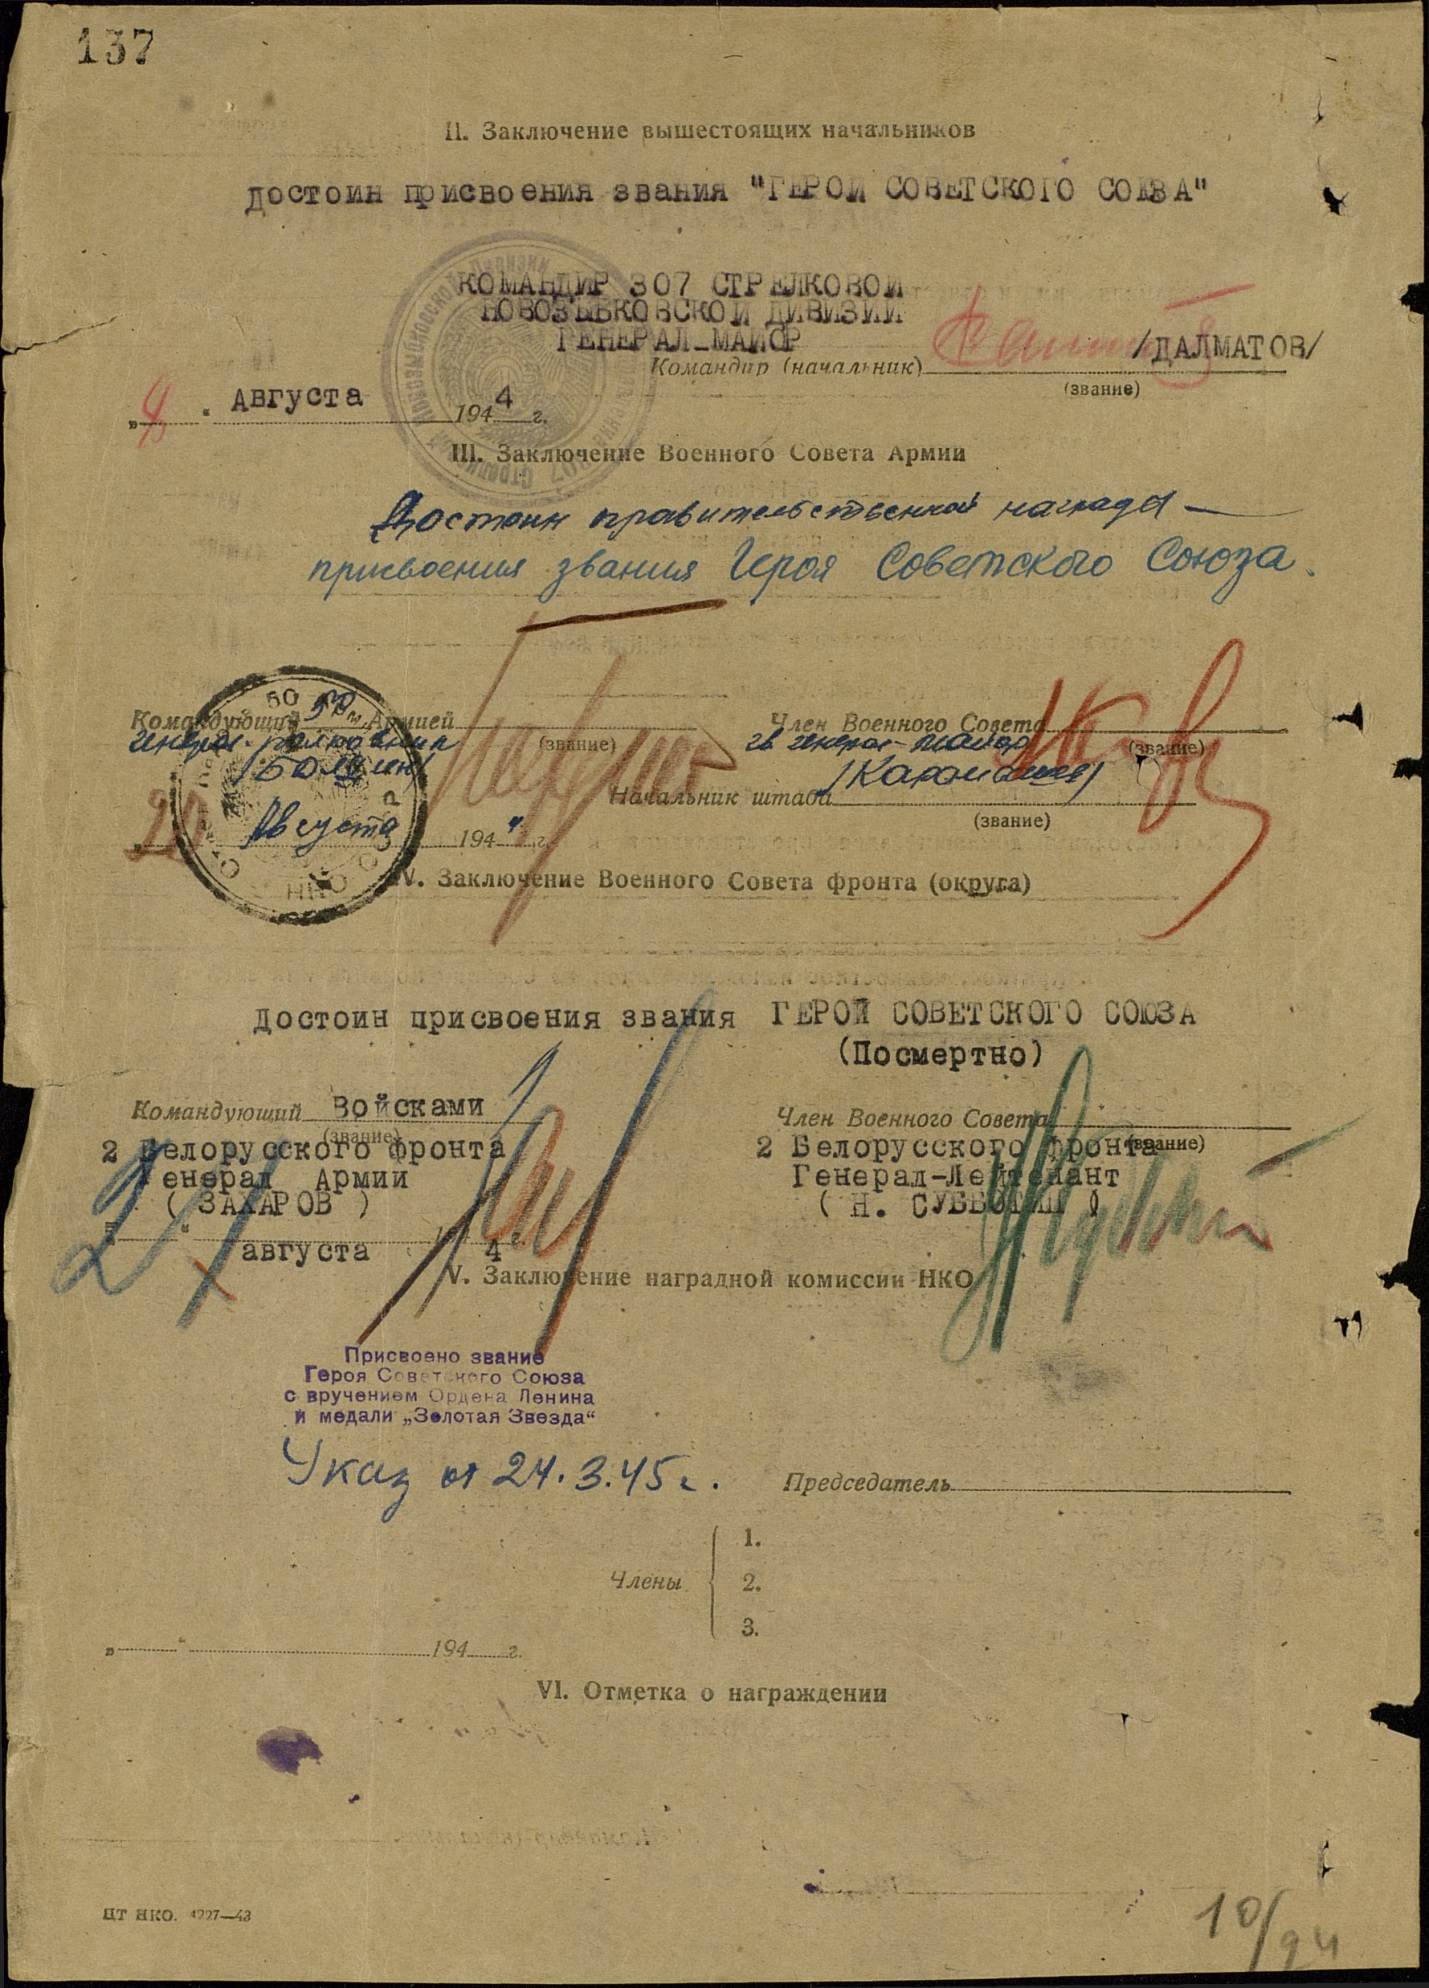 137
II. Заключение вышестоящих начальников
достоин присвоения звания "ГЕРОЙ СОВЕТСКОГО СОЮЗА"
КОМАНДИР 307 СТРЕЛКОВОЙ
НОВОЗЫБКОВСКОЙ ДИВИЗИИ
ГЕНЕРАЛ-МАЙОР
Командир (начальник) /ДАЛМАТОВ/
(звание)
" " Августа 1944 г.
III. Заключение Военного Совета Армии
Достоин правительственной награды —
присвоения звания Героя Советского Союза.
Командующий 50 Армией
(звание)
генерал-полковник
/Болдин/
20 Августа 1944 г.
Член Военного Совета
(звание)
гв генерал-майор
/Карамышев/
Начальник штаба
(звание)
IV. Заключение Военного Совета фронта (округа)
Достоин присвоения звания ГЕРОЙ СОВЕТСКОГО СОЮЗА
(Посмертно)
Командующий Войсками
(звание)
2 Белорусского фронта
Генерал Армии
( ЗАХАРОВ )
августа 4
Член Военного Совета
(звание)
2 Белорусского фронта
Генерал-Лейтенант
( Н. СУББОТИН )
V. Заключение наградной комиссии НКО
Присвоено звание
Героя Советского Союза
с вручением Ордена Ленина
и медали „Золотая Звезда“
Указ от 24.3.45 г.
Председатель
Члены
1.
2.
3.
" " 194 г.
VI. Отметка о награждении
ЦТ НКО. 4227—43
10/94